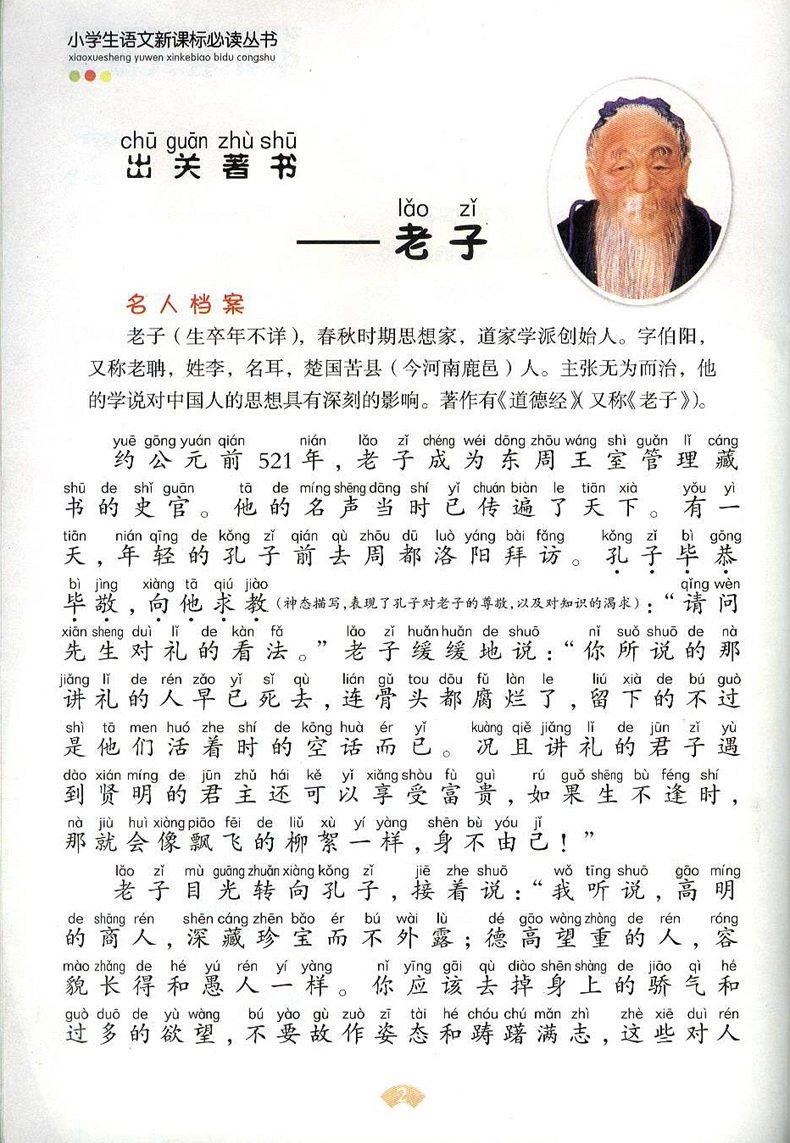 小学生语文新课标必读丛书
xiaoxuesheng yuwen xinkebiao bidu congshu
chū guān zhù shū
出关著书
lǎo zǐ
——老子
名人档案
老子（生卒年不详），春秋时期思想家，道家学派创始人。字伯阳，
又称老聃，姓李，名耳，楚国苦县（今河南鹿邑）人。主张无为而治，他
的学说对中国人的思想具有深刻的影响。著作有《道德经》（又称《老子》）。
yuē gōng yuán qián nián lǎo zǐ chéng wéi dōng zhōu wáng shì guǎn lǐ cáng
约公元前521年，老子成为东周王室管理藏
shū de shǐ guān tā de míng shēng dāng shí yǐ chuán biàn le tiān xià yǒu yì
书的史官。他的名声当时已传遍了天下。有一
tiān nián qīng de kǒng zǐ qián qù zhōu dū luò yáng bài fǎng kǒng zǐ bì gōng
天，年轻的孔子前去周都洛阳拜访。孔子毕恭
bì jìng xiàng tā qiú jiào qǐng wèn
毕敬，向他求教（神态描写，表现了孔子对老子的尊敬，以及对知识的渴求）：“请问
xiān sheng duì lǐ de kàn fǎ lǎo zǐ huǎn huǎn de shuō nǐ suǒ shuō de nà
先生对礼的看法。”老子缓缓地说：“你所说的那
jiǎng lǐ de rén zǎo yǐ sǐ qù lián gǔ tou dōu fǔ làn le liú xià de bú guò
讲礼的人早已死去，连骨头都腐烂了，留下的不过
shì tā men huó zhe shí de kōng huà ér yǐ kuàng qiě jiǎng lǐ de jūn zǐ yù
是他们活着时的空话而已。况且讲礼的君子遇
dào xián míng de jūn zhǔ hái kě yǐ xiǎng shòu fù guì rú guǒ shēng bù féng shí
到贤明的君主还可以享受富贵，如果生不逢时，
nà jiù huì xiàng piāo fēi de liǔ xù yí yàng shēn bù yóu jǐ
那就会像飘飞的柳絮一样，身不由己！”
lǎo zǐ mù guāng zhuǎn xiàng kǒng zǐ jiē zhe shuō wǒ tīng shuō gāo míng
老子目光转向孔子，接着说：“我听说，高明
de shāng rén shēn cáng zhēn bǎo ér bú wài lù dé gāo wàng zhòng de rén róng
的商人，深藏珍宝而不外露；德高望重的人，容
mào zhǎng de hé yú rén yí yàng nǐ yīng gāi qù diào shēn shàng de jiāo qì hé
貌长得和愚人一样。你应该去掉身上的骄气和
guò duō de yù wàng bú yào gù zuò zī tài hé chóu chú mǎn zhì zhè xiē duì rén
过多的欲望，不要故作姿态和踌躇满志，这些对人
2